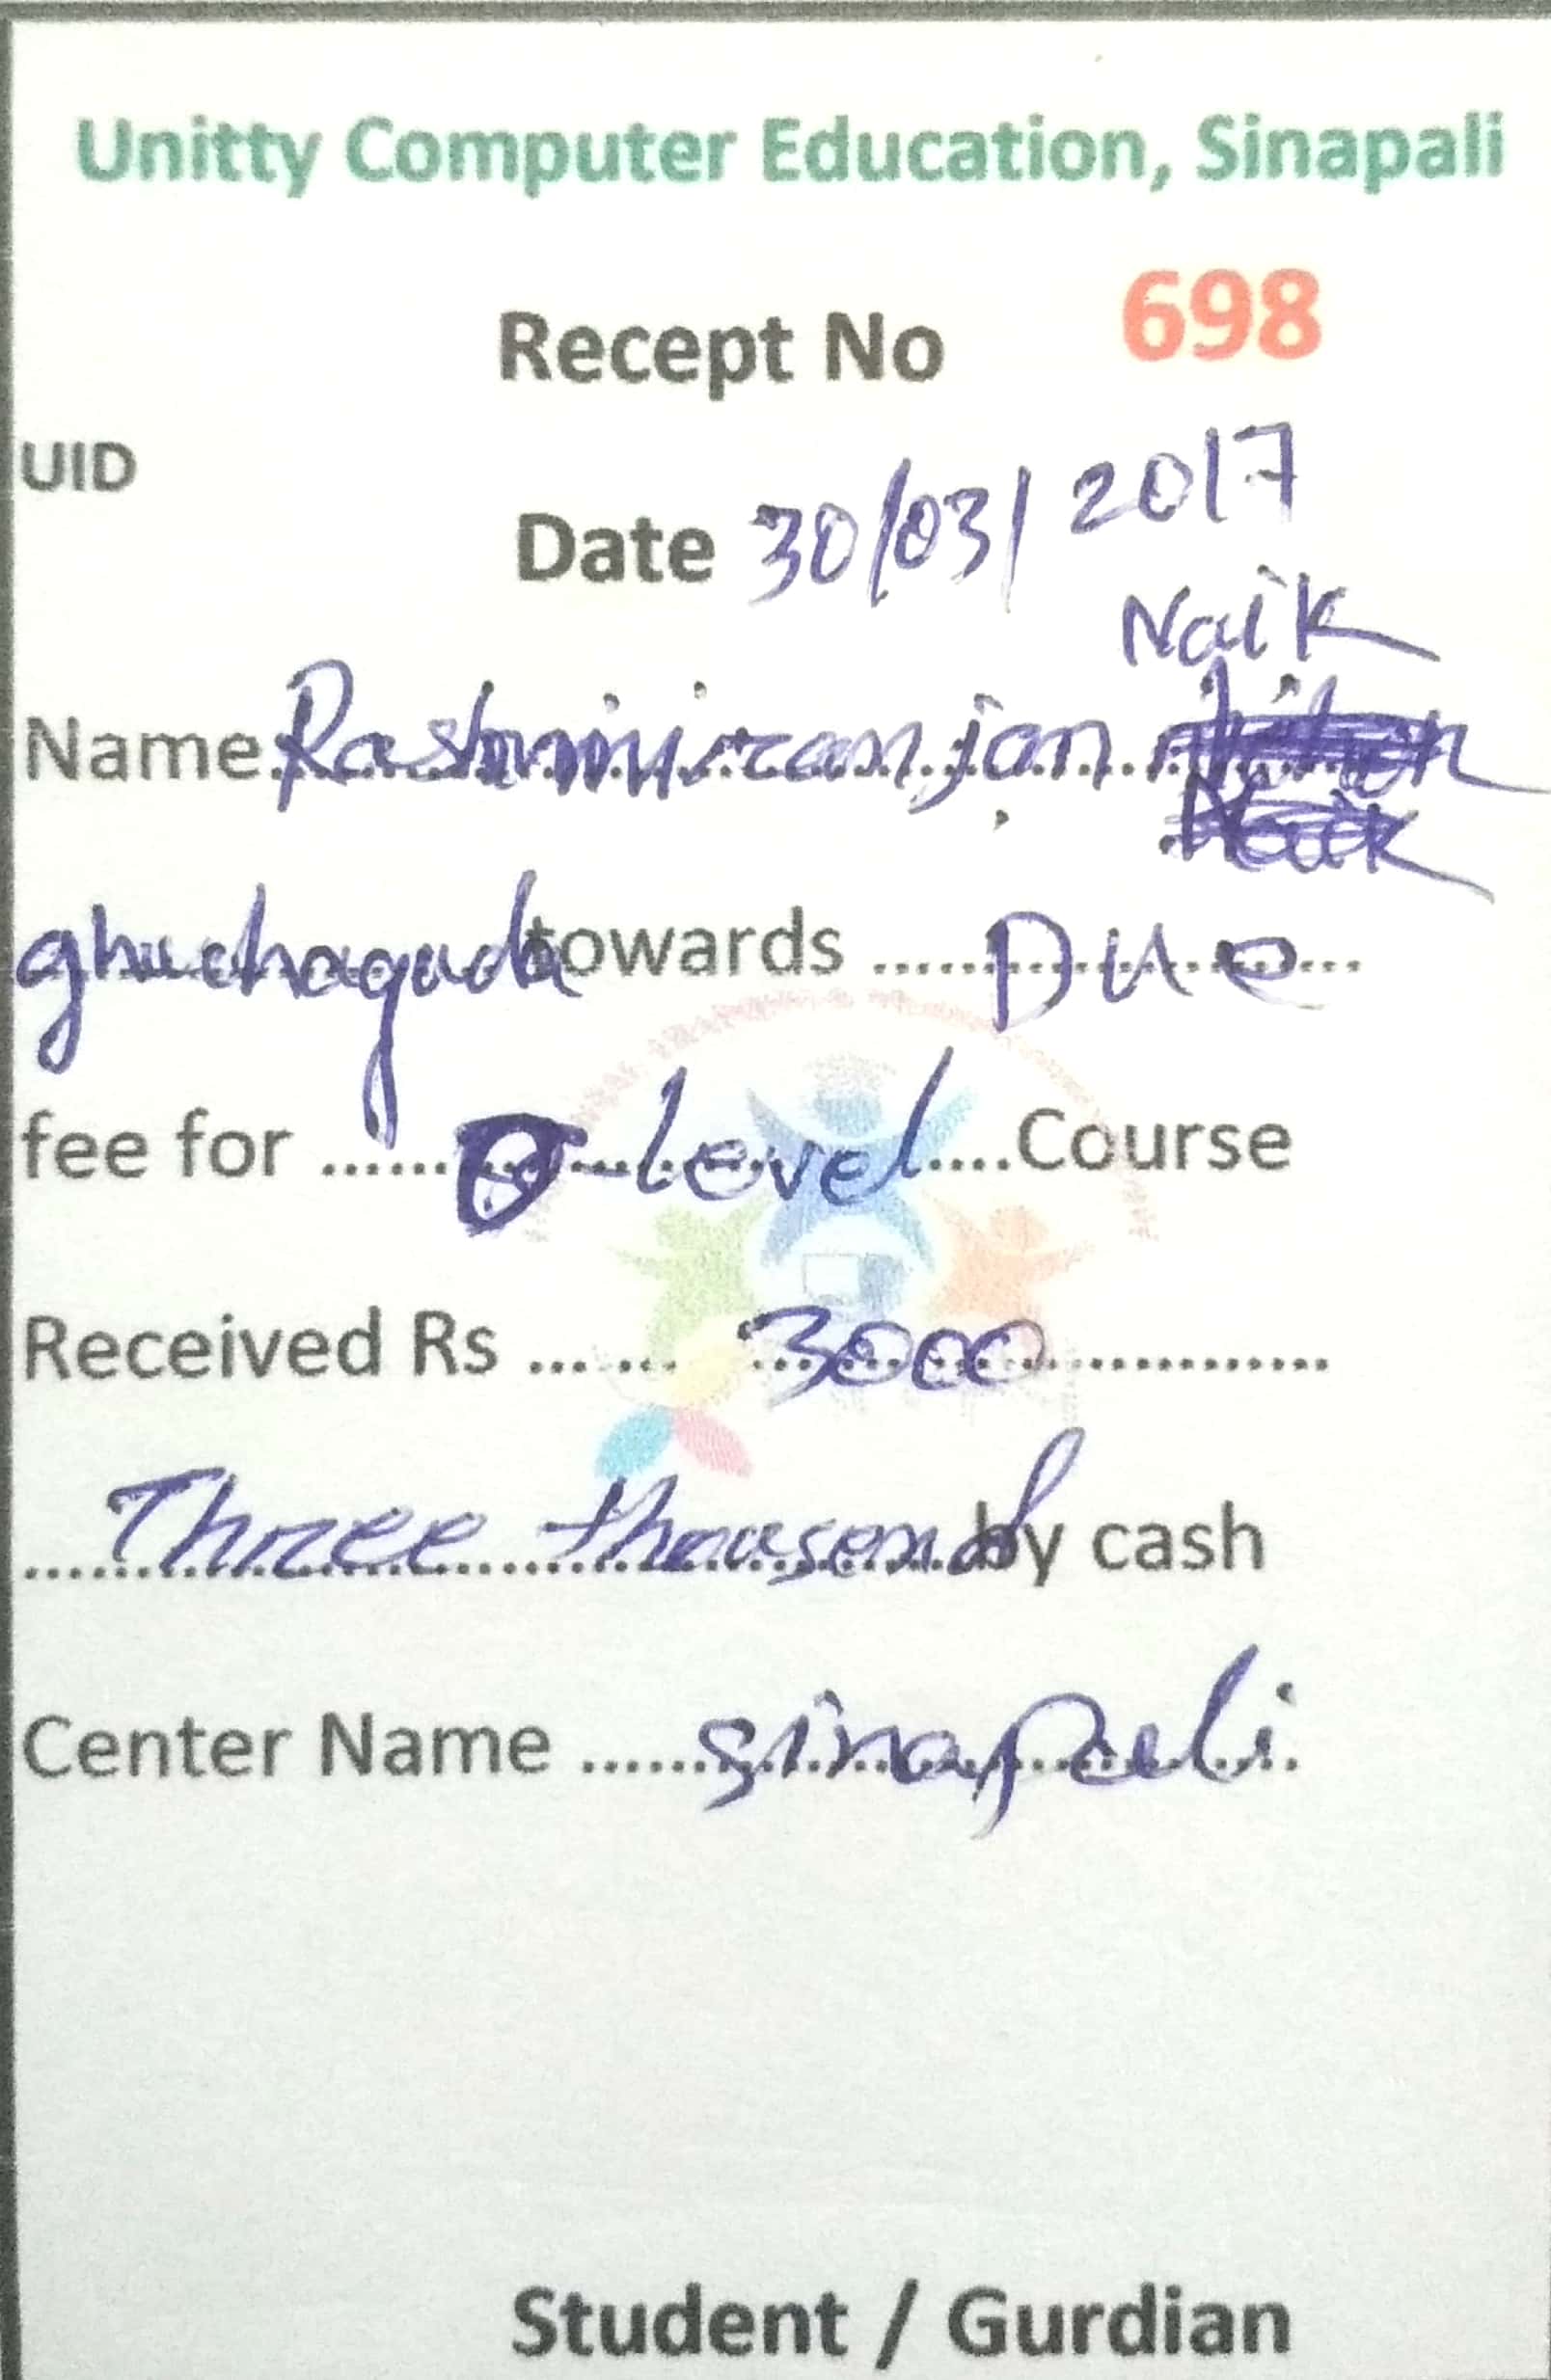 Unitty Computer Education, Sinapali
Recept No 698
UID
Date 30/03/2017
Naik
Name Rashmiranjan
ghuchaguda towards ........ Due ........
fee for ........ O-level ........ Course
Received Rs ........ 3000 ........
Three thousend by cash
Center Name ........ sinapali
Student / Gurdian